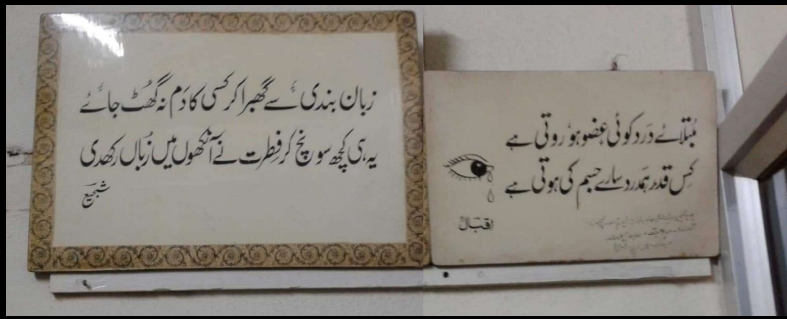 زبان بندی سے گھبرا کر کسی کا دَم نہ گھُٹ جائے
یہ ہی کچھ سونچ کر فطرت نے آنکھوں میں زُباں رکھدی
شجیع
مُبتلائے دَرد کوئی عضو ہو روتی ہے
کِس قدر ہمَدرد سارے جسم کی ہوتی ہے
اقبال